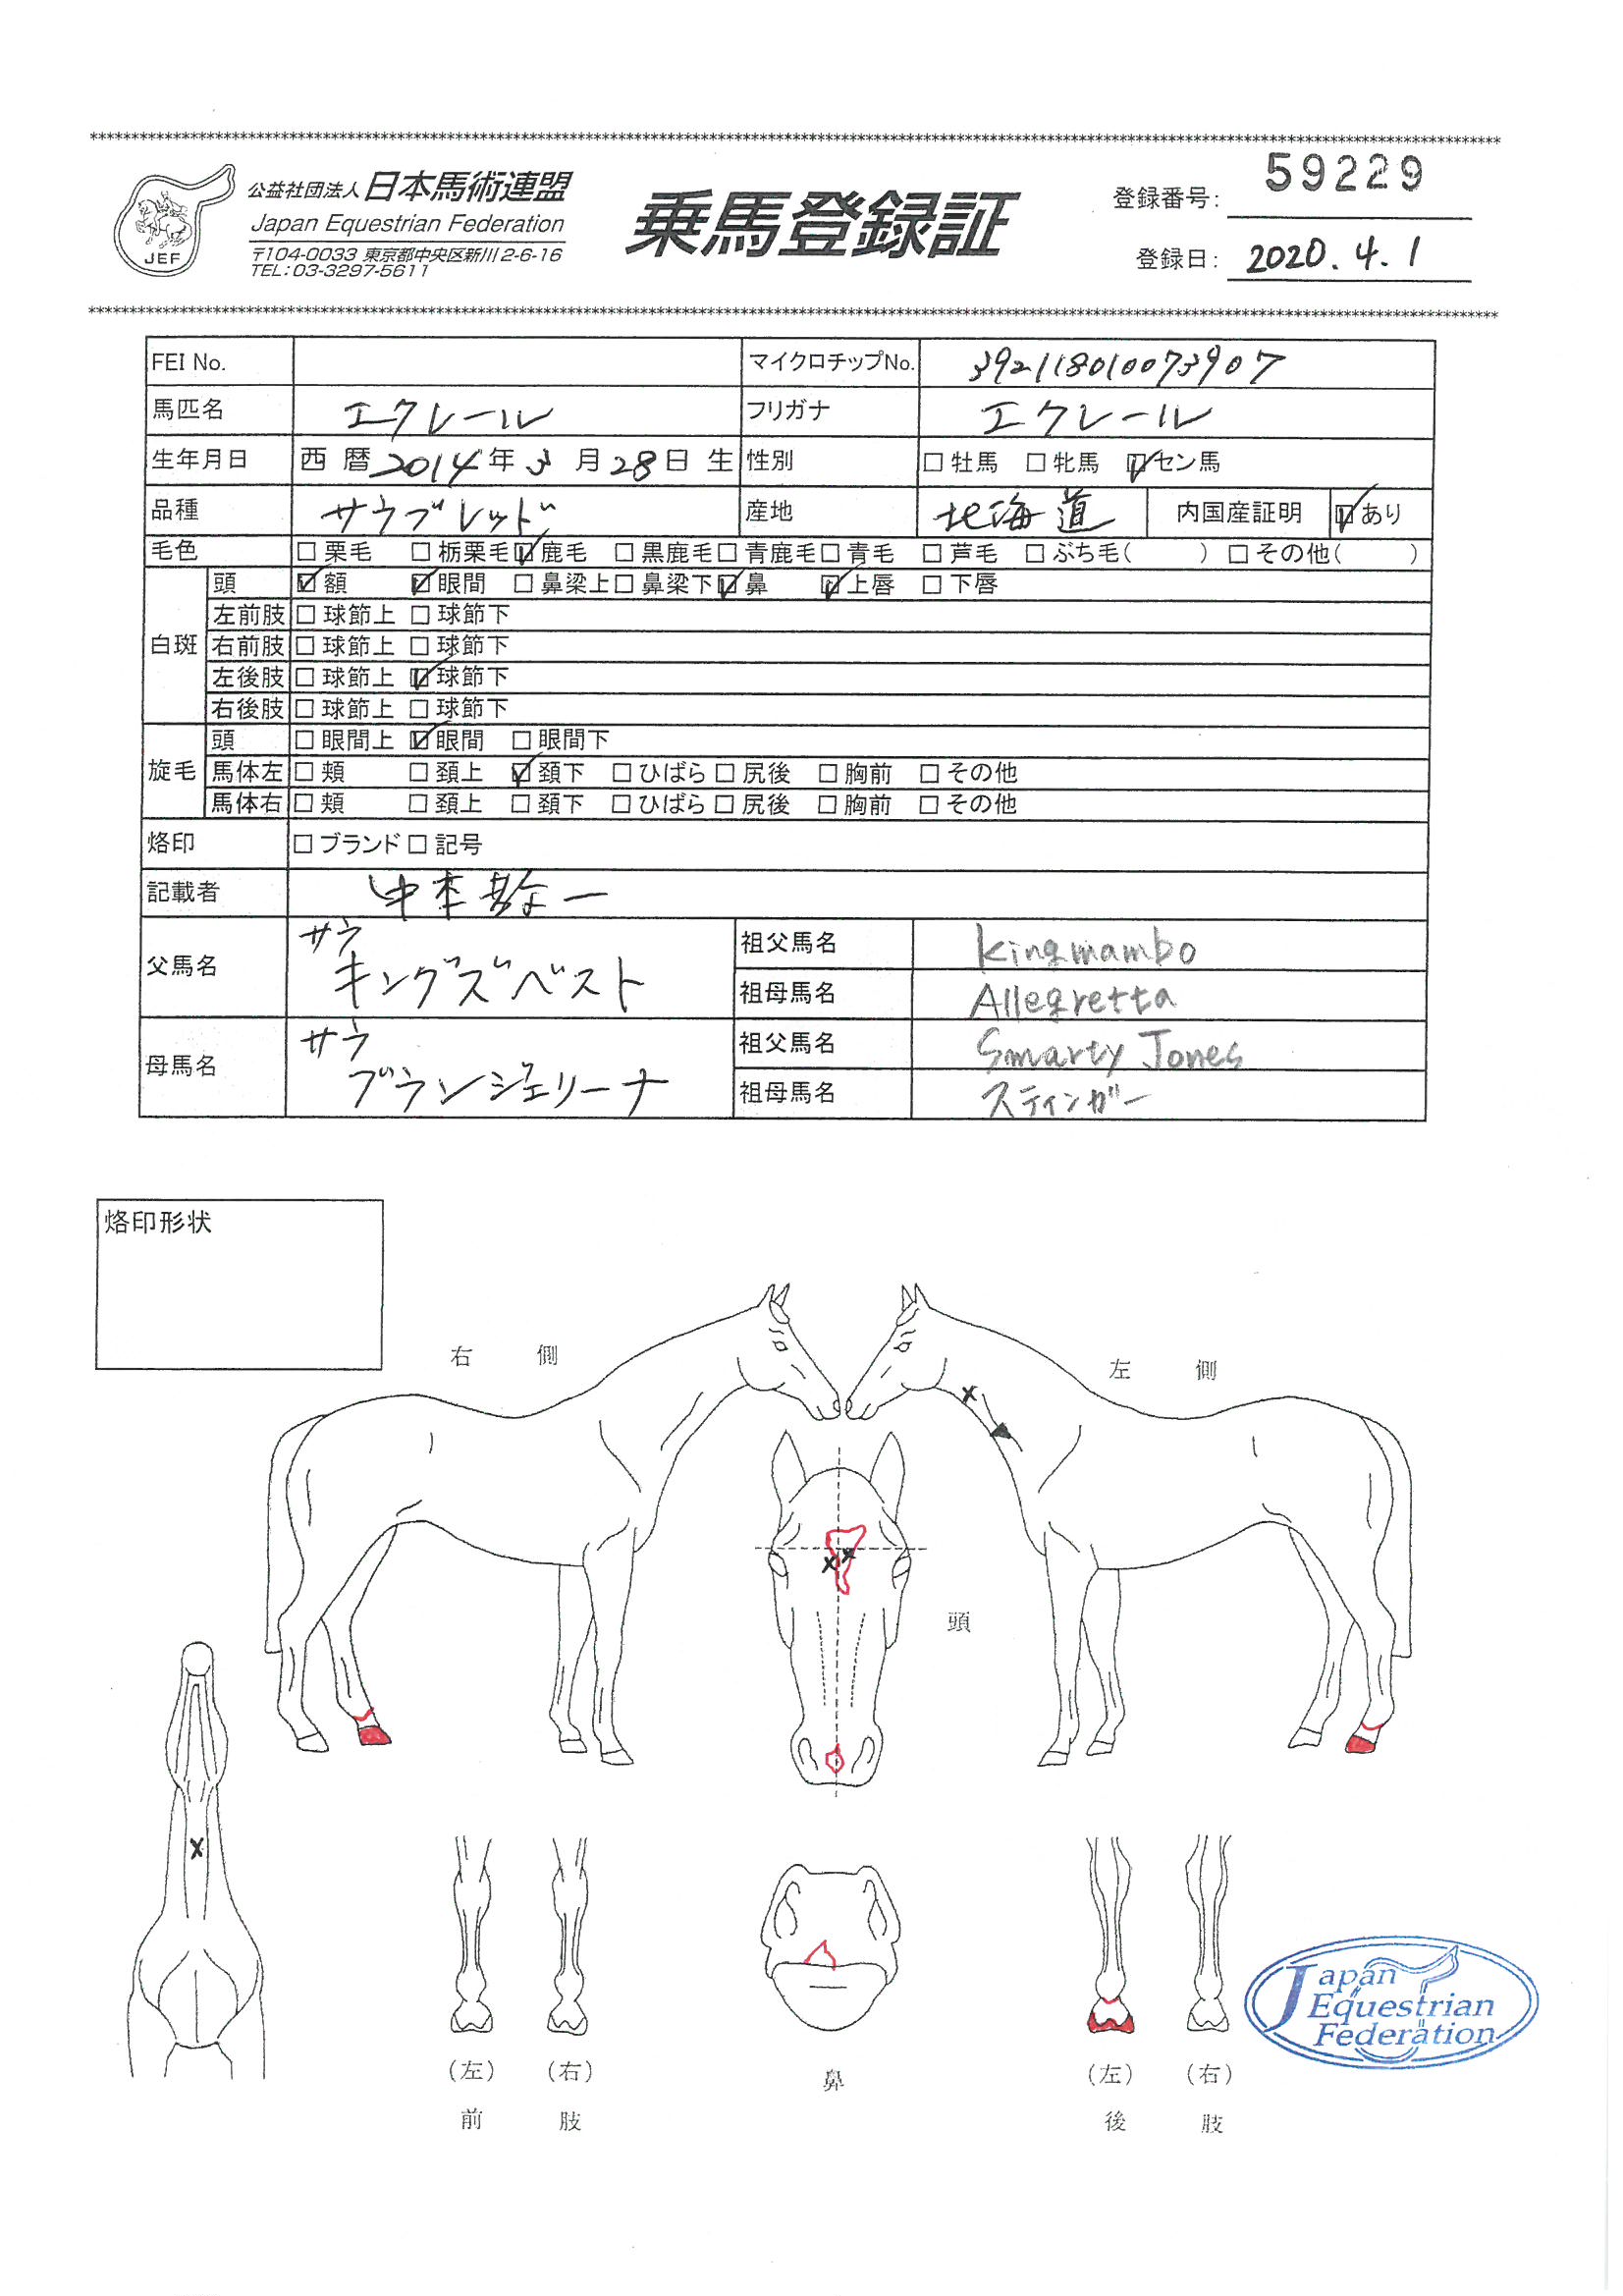 公益社団法人 日本馬術連盟
Japan Equestrian Federation
〒104-0033 東京都中央区新川2-6-16
TEL:03-3297-5611
JEF
乗馬登録証
登録番号: 59229
登録日: 2020.4.1
FEI No. マイクロチップNo. 392118010073907
馬匹名 エクレール フリガナ エクレール
生年月日 西暦2014年3月28日生 性別 □牡馬 □牝馬 ☑セン馬
品種 サラブレッド 産地 北海道 内国産証明 ☑あり
毛色 □栗毛 □栃栗毛 ☑鹿毛 □黒鹿毛 □青鹿毛 □青毛 □芦毛 □ぶち毛( ) □その他( )
白斑 頭 ☑額 ☑眼間 □鼻梁上 □鼻梁下 ☑鼻 ☑上唇 □下唇
左前肢 □球節上 □球節下
右前肢 □球節上 □球節下
左後肢 □球節上 ☑球節下
右後肢 □球節上 □球節下
旋毛 頭 □眼間上 ☑眼間 □眼間下
馬体左 □頬 □頚上 ☑頚下 □ひばら □尻後 □胸前 □その他
馬体右 □頬 □頚上 □頚下 □ひばら □尻後 □胸前 □その他
烙印 □ブランド □記号
記載者 中本 一
父馬名 サラ キングズベスト 祖父馬名 Kingmambo
祖母馬名 Allegretta
母馬名 サラ ブランジェリーナ 祖父馬名 Smarty Jones
祖母馬名 スティンガー
烙印形状
右側
左側
頭
(左) (右)
前肢
鼻
(左) (右)
後肢
Japan
Equestrian
Federation